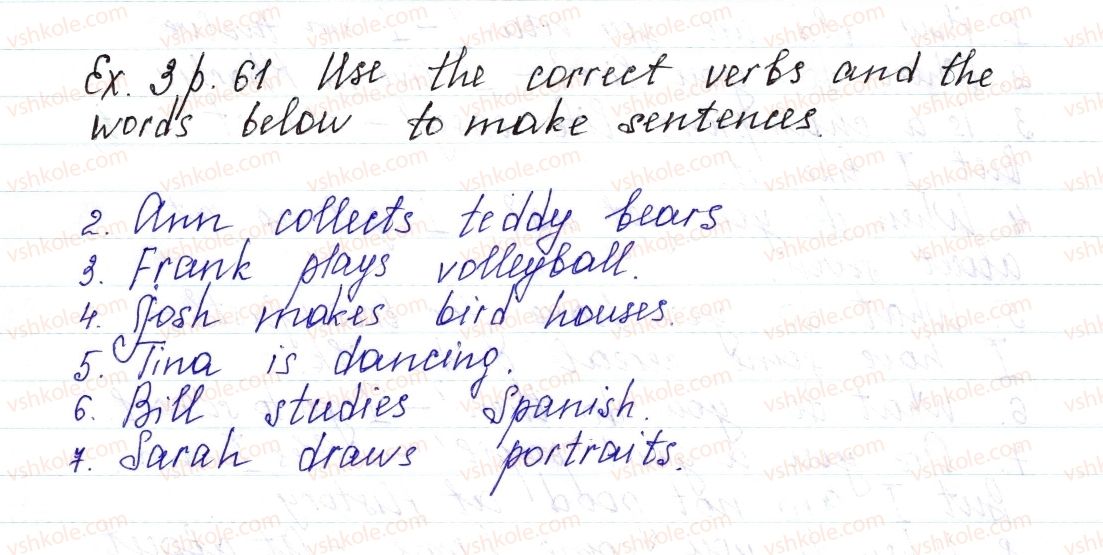 Ex. 3 p. 61 Use the correct verbs and the
words below to make sentences.
2. Ann collects teddy bears
3. Frank plays volleyball.
4. Josh makes bird houses.
5. Tina is dancing.
6. Bill studies Spanish.
7. Sarah draws portraits.